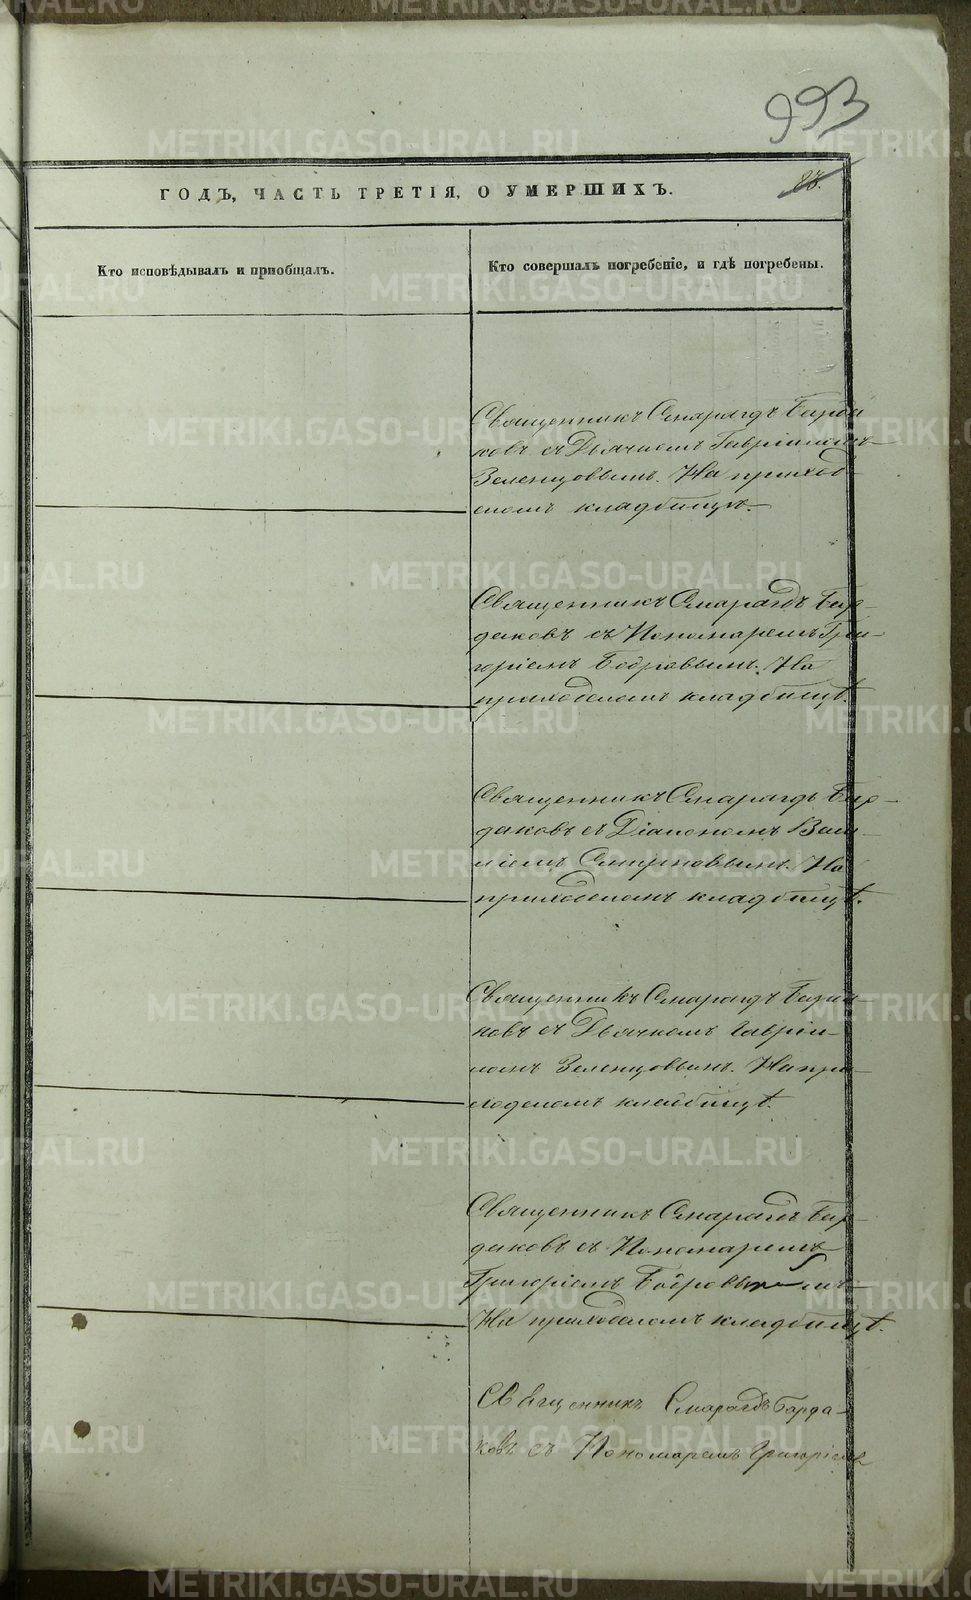 993
28.
ГОДЪ, ЧАСТЬ ТРЕТІЯ, О УМЕРШИХЪ.
Кто исповѣдывалъ и пріобщалъ.
Кто совершалъ погребеніе, и гдѣ погребены.
Священникъ Смарагдъ Барда
ковъ съ Дьячкомъ Гавріиломъ
Зеленцовымъ. На приход-
скомъ кладбищѣ.
Священникъ Смарагдъ Бар-
даковъ съ Пономаремъ Гри-
горіемъ Бобровымъ. На
приходскомъ кладбищѣ.
Священникъ Смарагдъ Бар-
даковъ съ Діакономъ Васи-
ліемъ Смирновымъ. На
приходскомъ кладбищѣ.
Священникъ Смарагдъ Барда-
ковъ съ Дьячкомъ Гавріи-
ломъ Зеленцовымъ. На при-
ходскомъ кладбищѣ.
Священникъ Смарагдъ Бар-
даковъ съ Пономаремъ
Григоріемъ Бобровымъ
На приходскомъ кладбищѣ.
Священникъ Смарагдъ Барда-
ковъ съ Пономаремъ Григоріемъ
METRIKI.GASO-URAL.RU